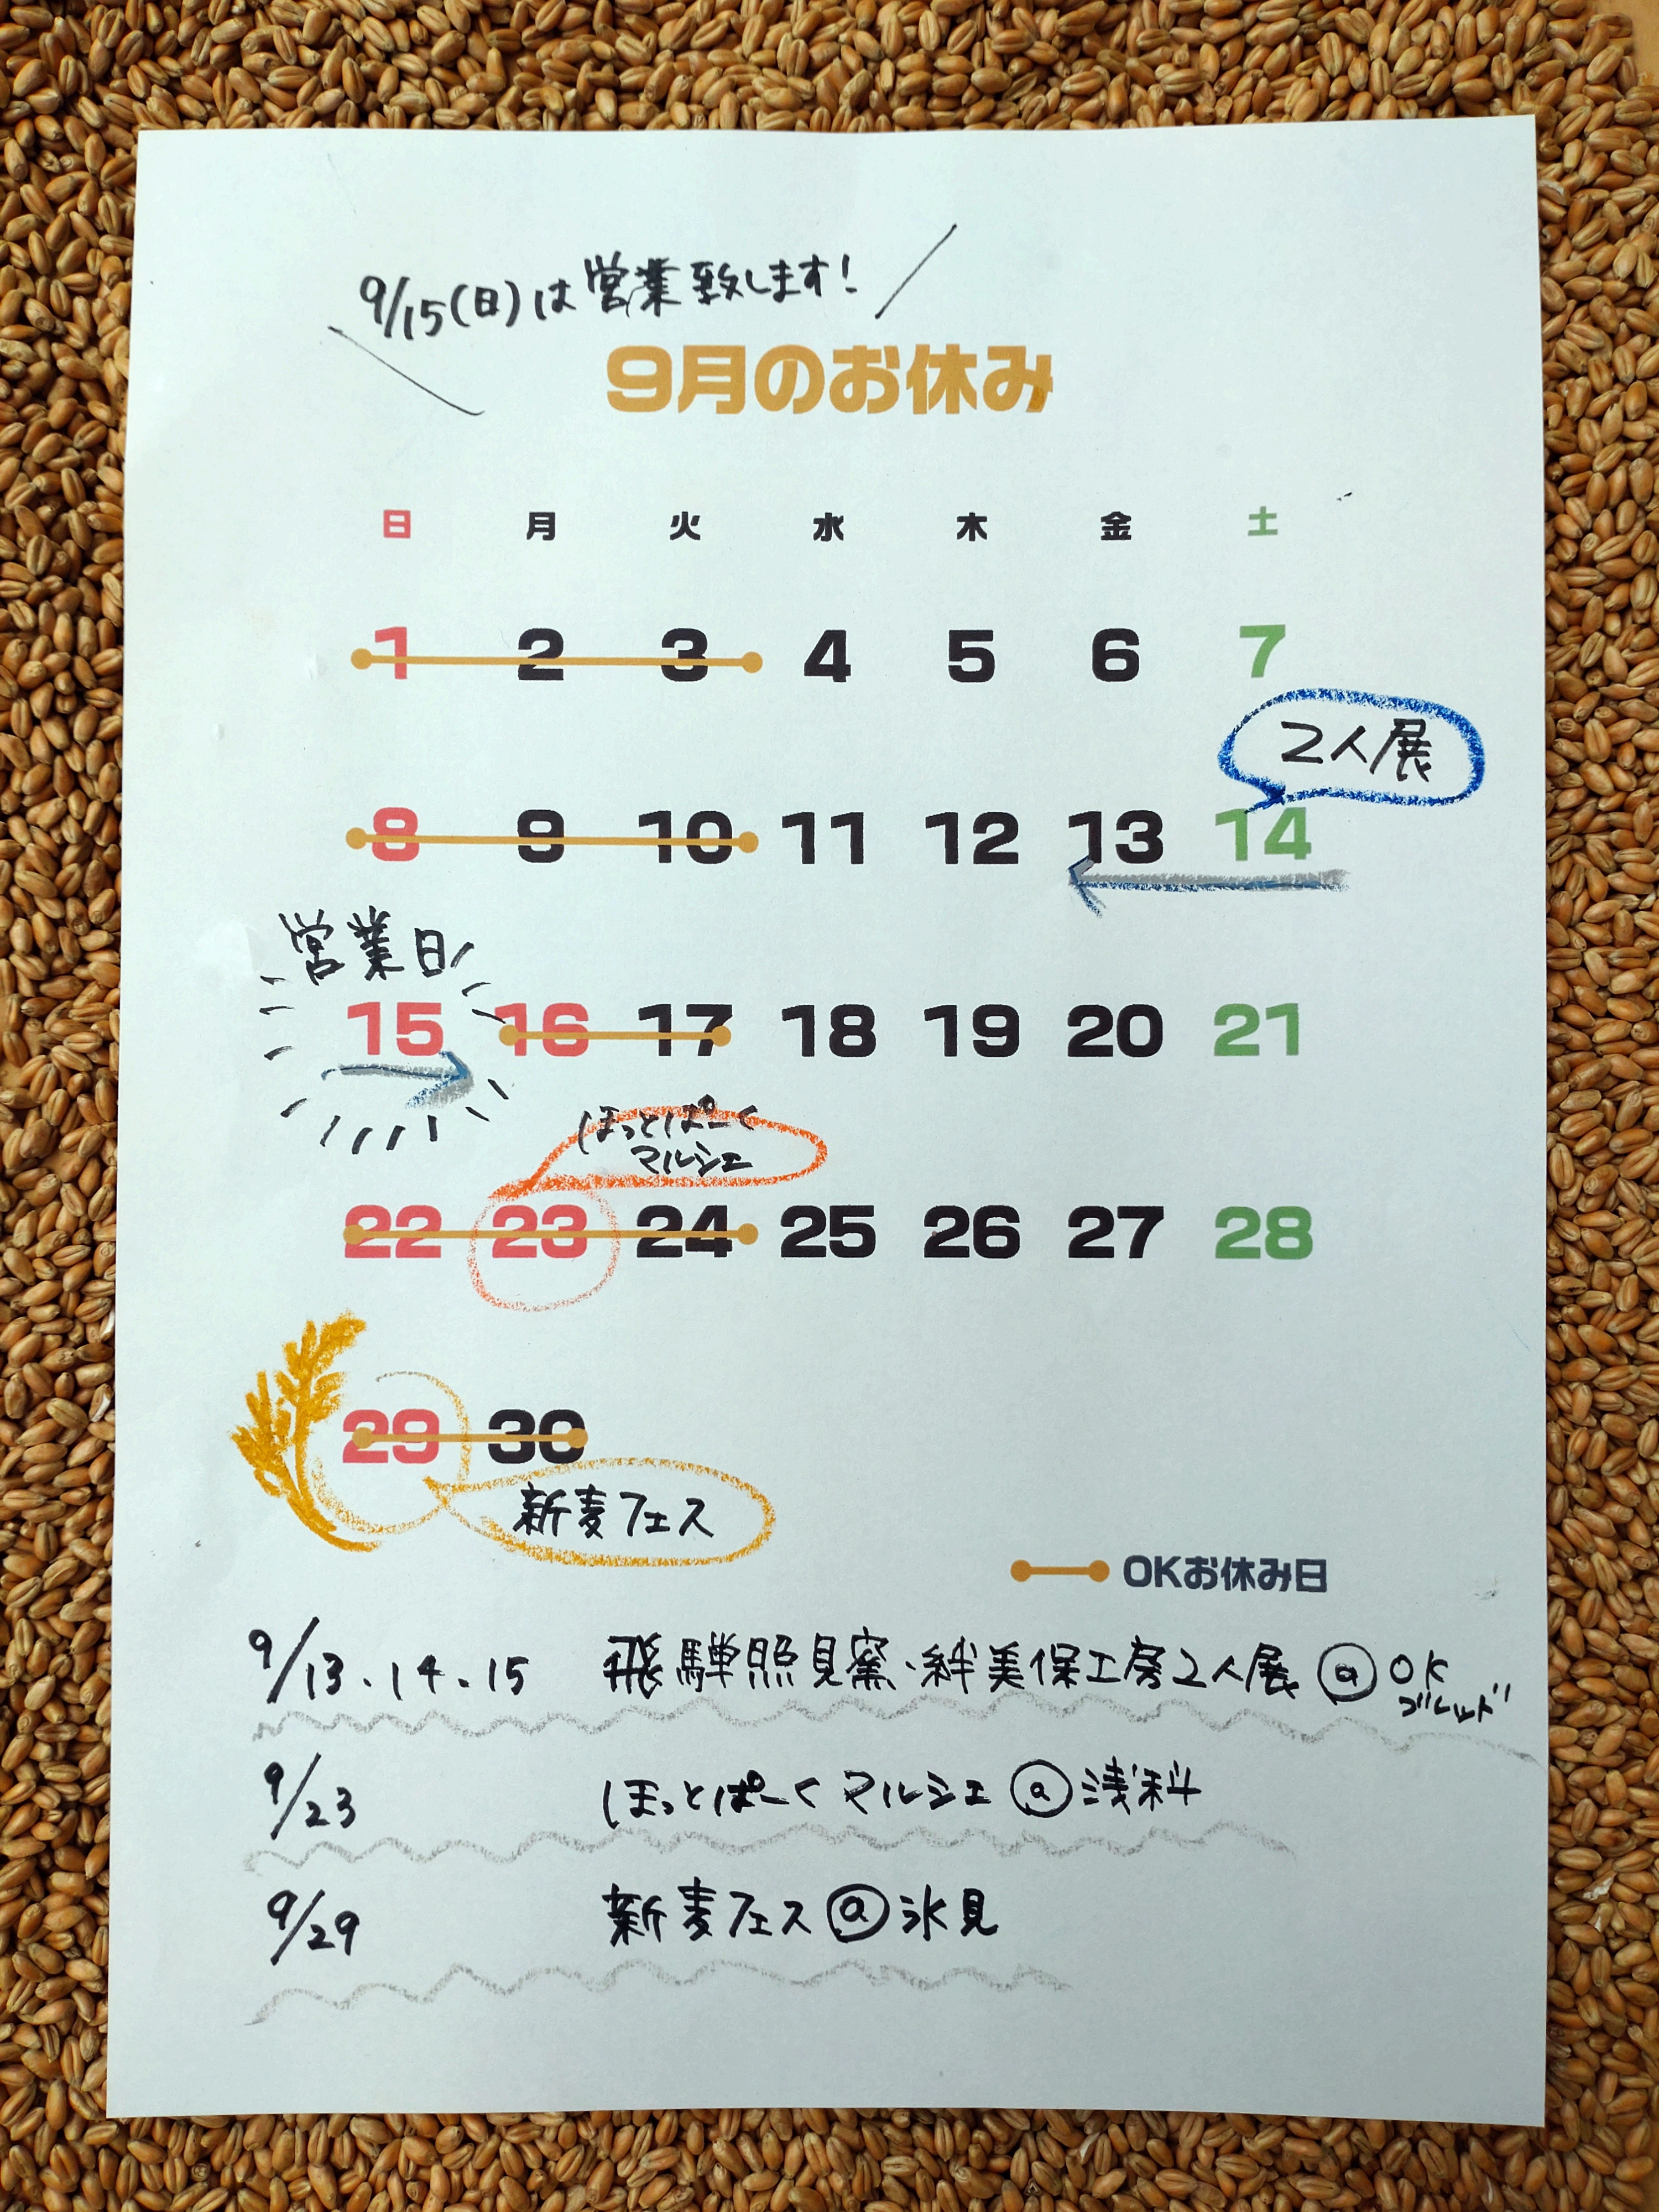 9/15(日)は営業致します!
9月のお休み
日 月 火 水 木 金 土
1 2 3 4 5 6 7
2人展
8 9 10 11 12 13 14
営業日
15 16 17 18 19 20 21
ほっとぱーく
マルシェ
22 23 24 25 26 27 28
29 30
新麦フェス
OKお休み日
9/13.14.15 飛騨照見窯・絆美保工房2人展@OK
ブレッド
9/23 ほっとぱーくマルシェ@浅科
9/29 新麦フェス@氷見